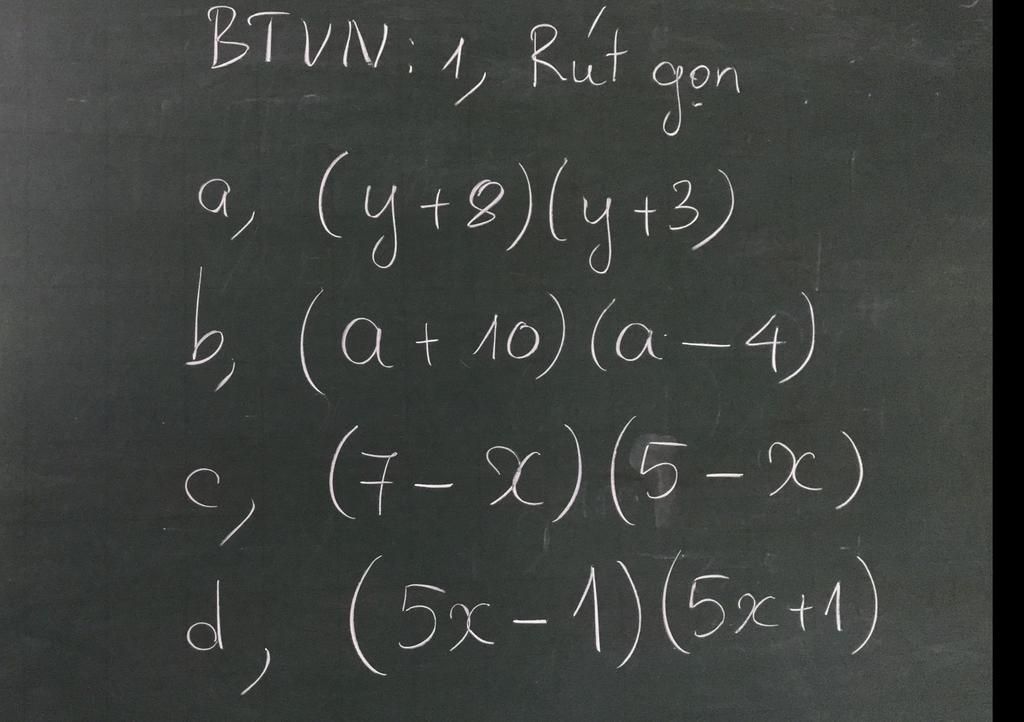 BTVN: 1, Rút gọn
a, (y+8)(y+3)
b, (a + 10)(a - 4)
c, (7 - x)(5 - x)
d, (5x - 1)(5x+1)